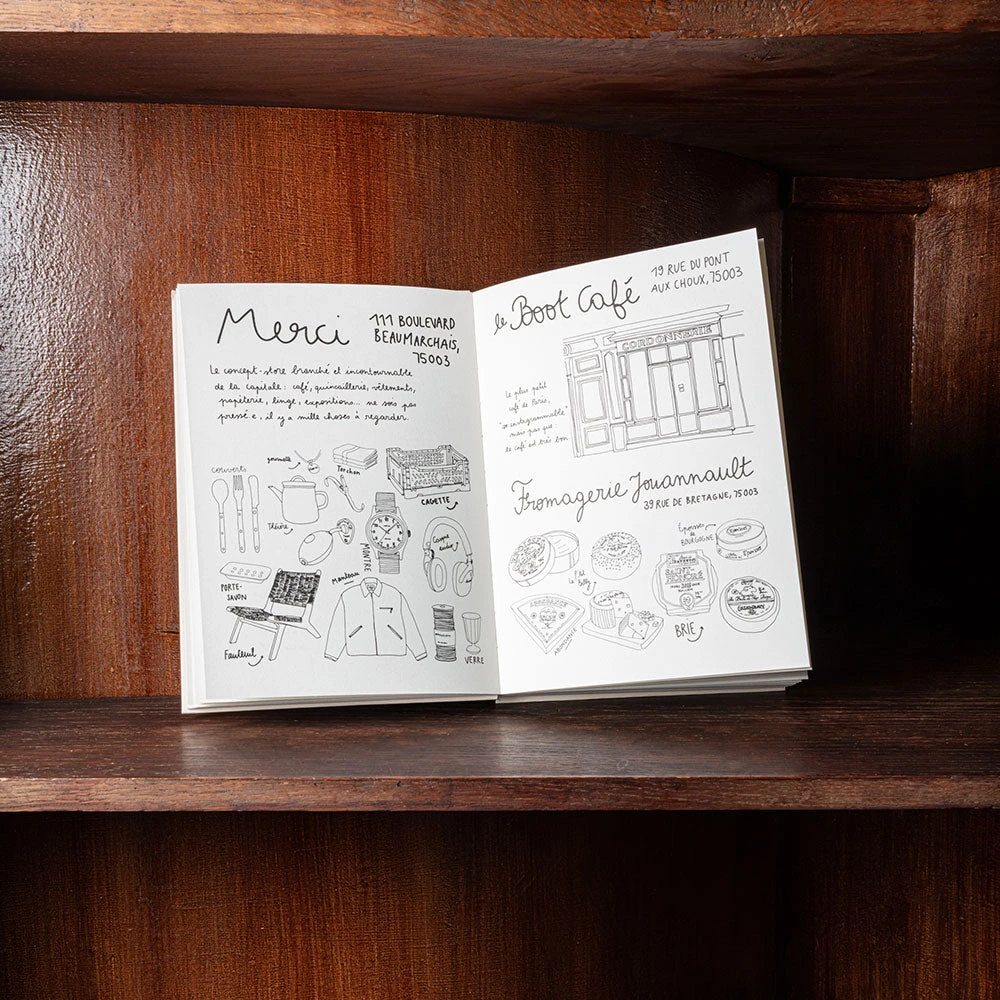 Merci
111 BOULEVARD
BEAUMARCHAIS,
75003
Le concept-store branché et incontournable
de la capitale : café, quincaillerie, vêtements,
papèterie, linge, expositions... ne sois pas
pressé·e, il y a mille choses à regarder.
couverts
gourmette
Torchon
CAGETTE
Théière
MONTRE
Casque
audio
PORTE-
SAVON
Manteau
Fauteuil
VERRE
le Boot Café
19 RUE DU PONT
AUX CHOUX, 75003
CORDONNERIE
8
Le plus petit
café de Paris,
"so instagrammable"
mais pas que :
le café est très bon
Fromagerie Jouannault
39 RUE DE BRETAGNE, 75003
Époisses
de
BOURGOGNE
Le P'tit
Billy
SAINT
HONORÉ
ABONDANCE
BRIE